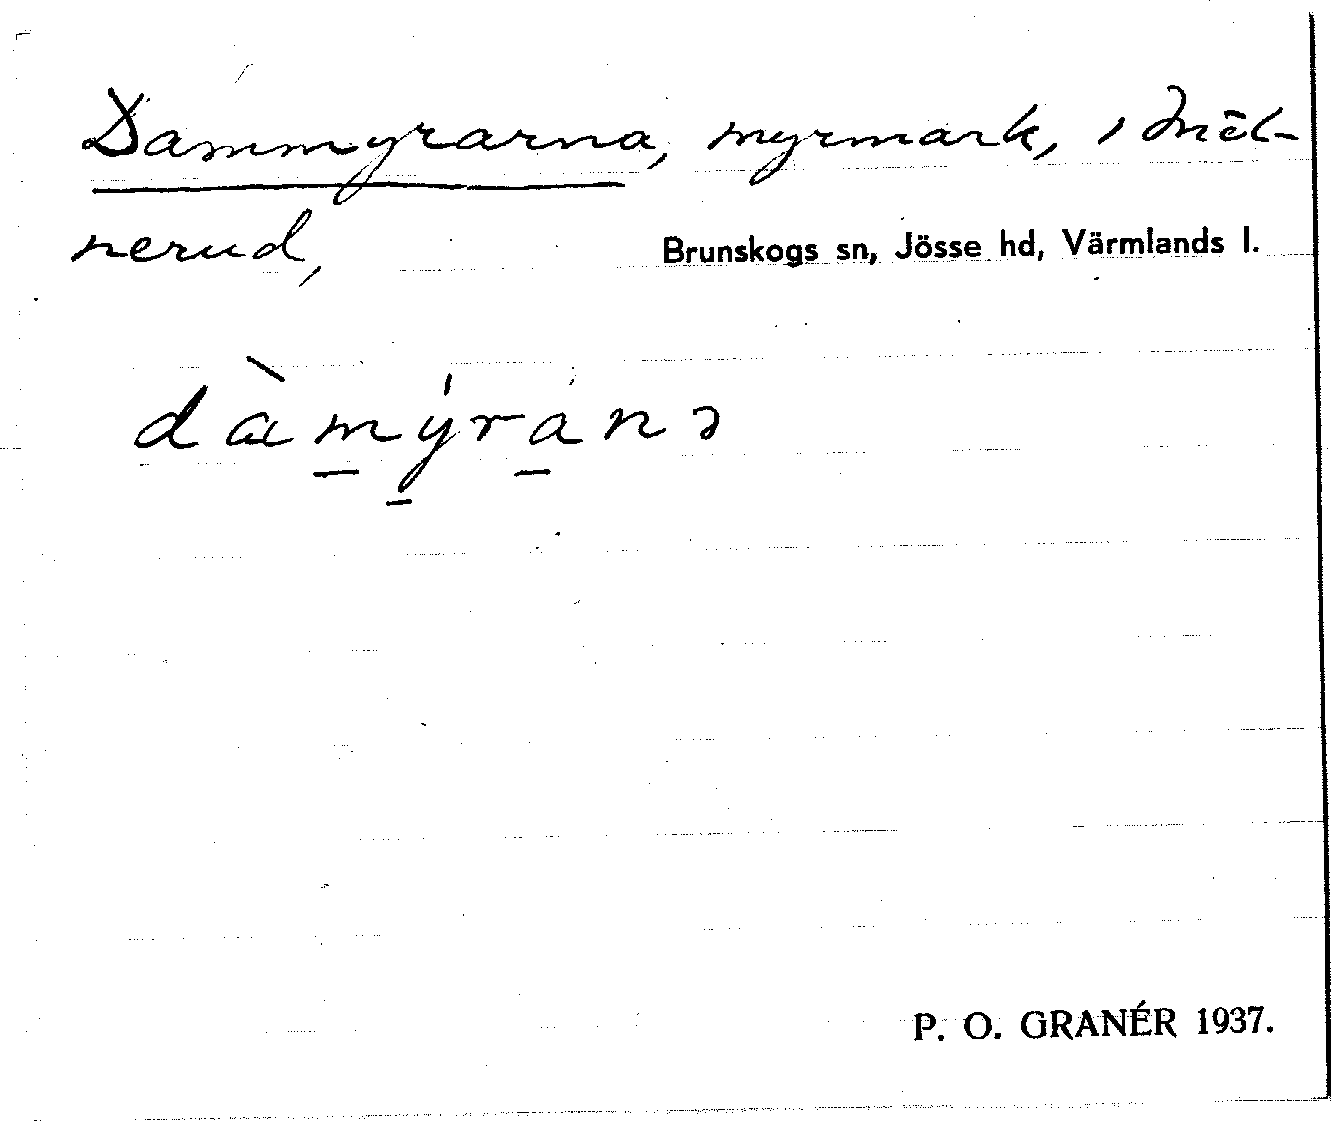 Dammyrarna, myrmark, i Mel-
nerud,
Brunskogs sn, Jösse hd, Värmlands l.
P. O. GRANÉR 1937.